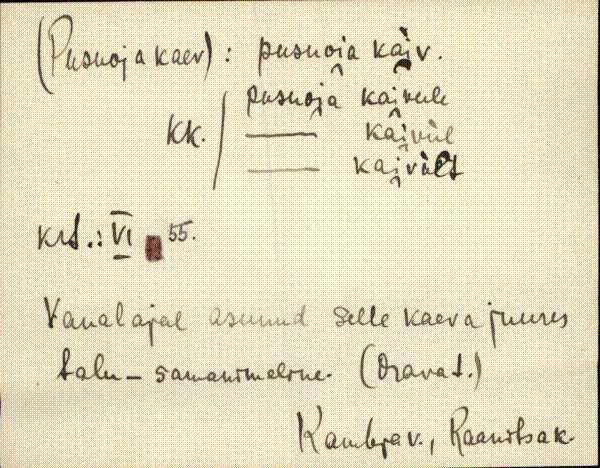 (Pusuoja kaev): pusuoia kaiv.
pusuoja kaivule
KK. ——— kaivül
——— kaivült
Krt.: VI 55.
Vanal ajal asunud selle kaeva juures
talu — samanimeline. (Orava t.)
Kambja v., Raanitsa k.